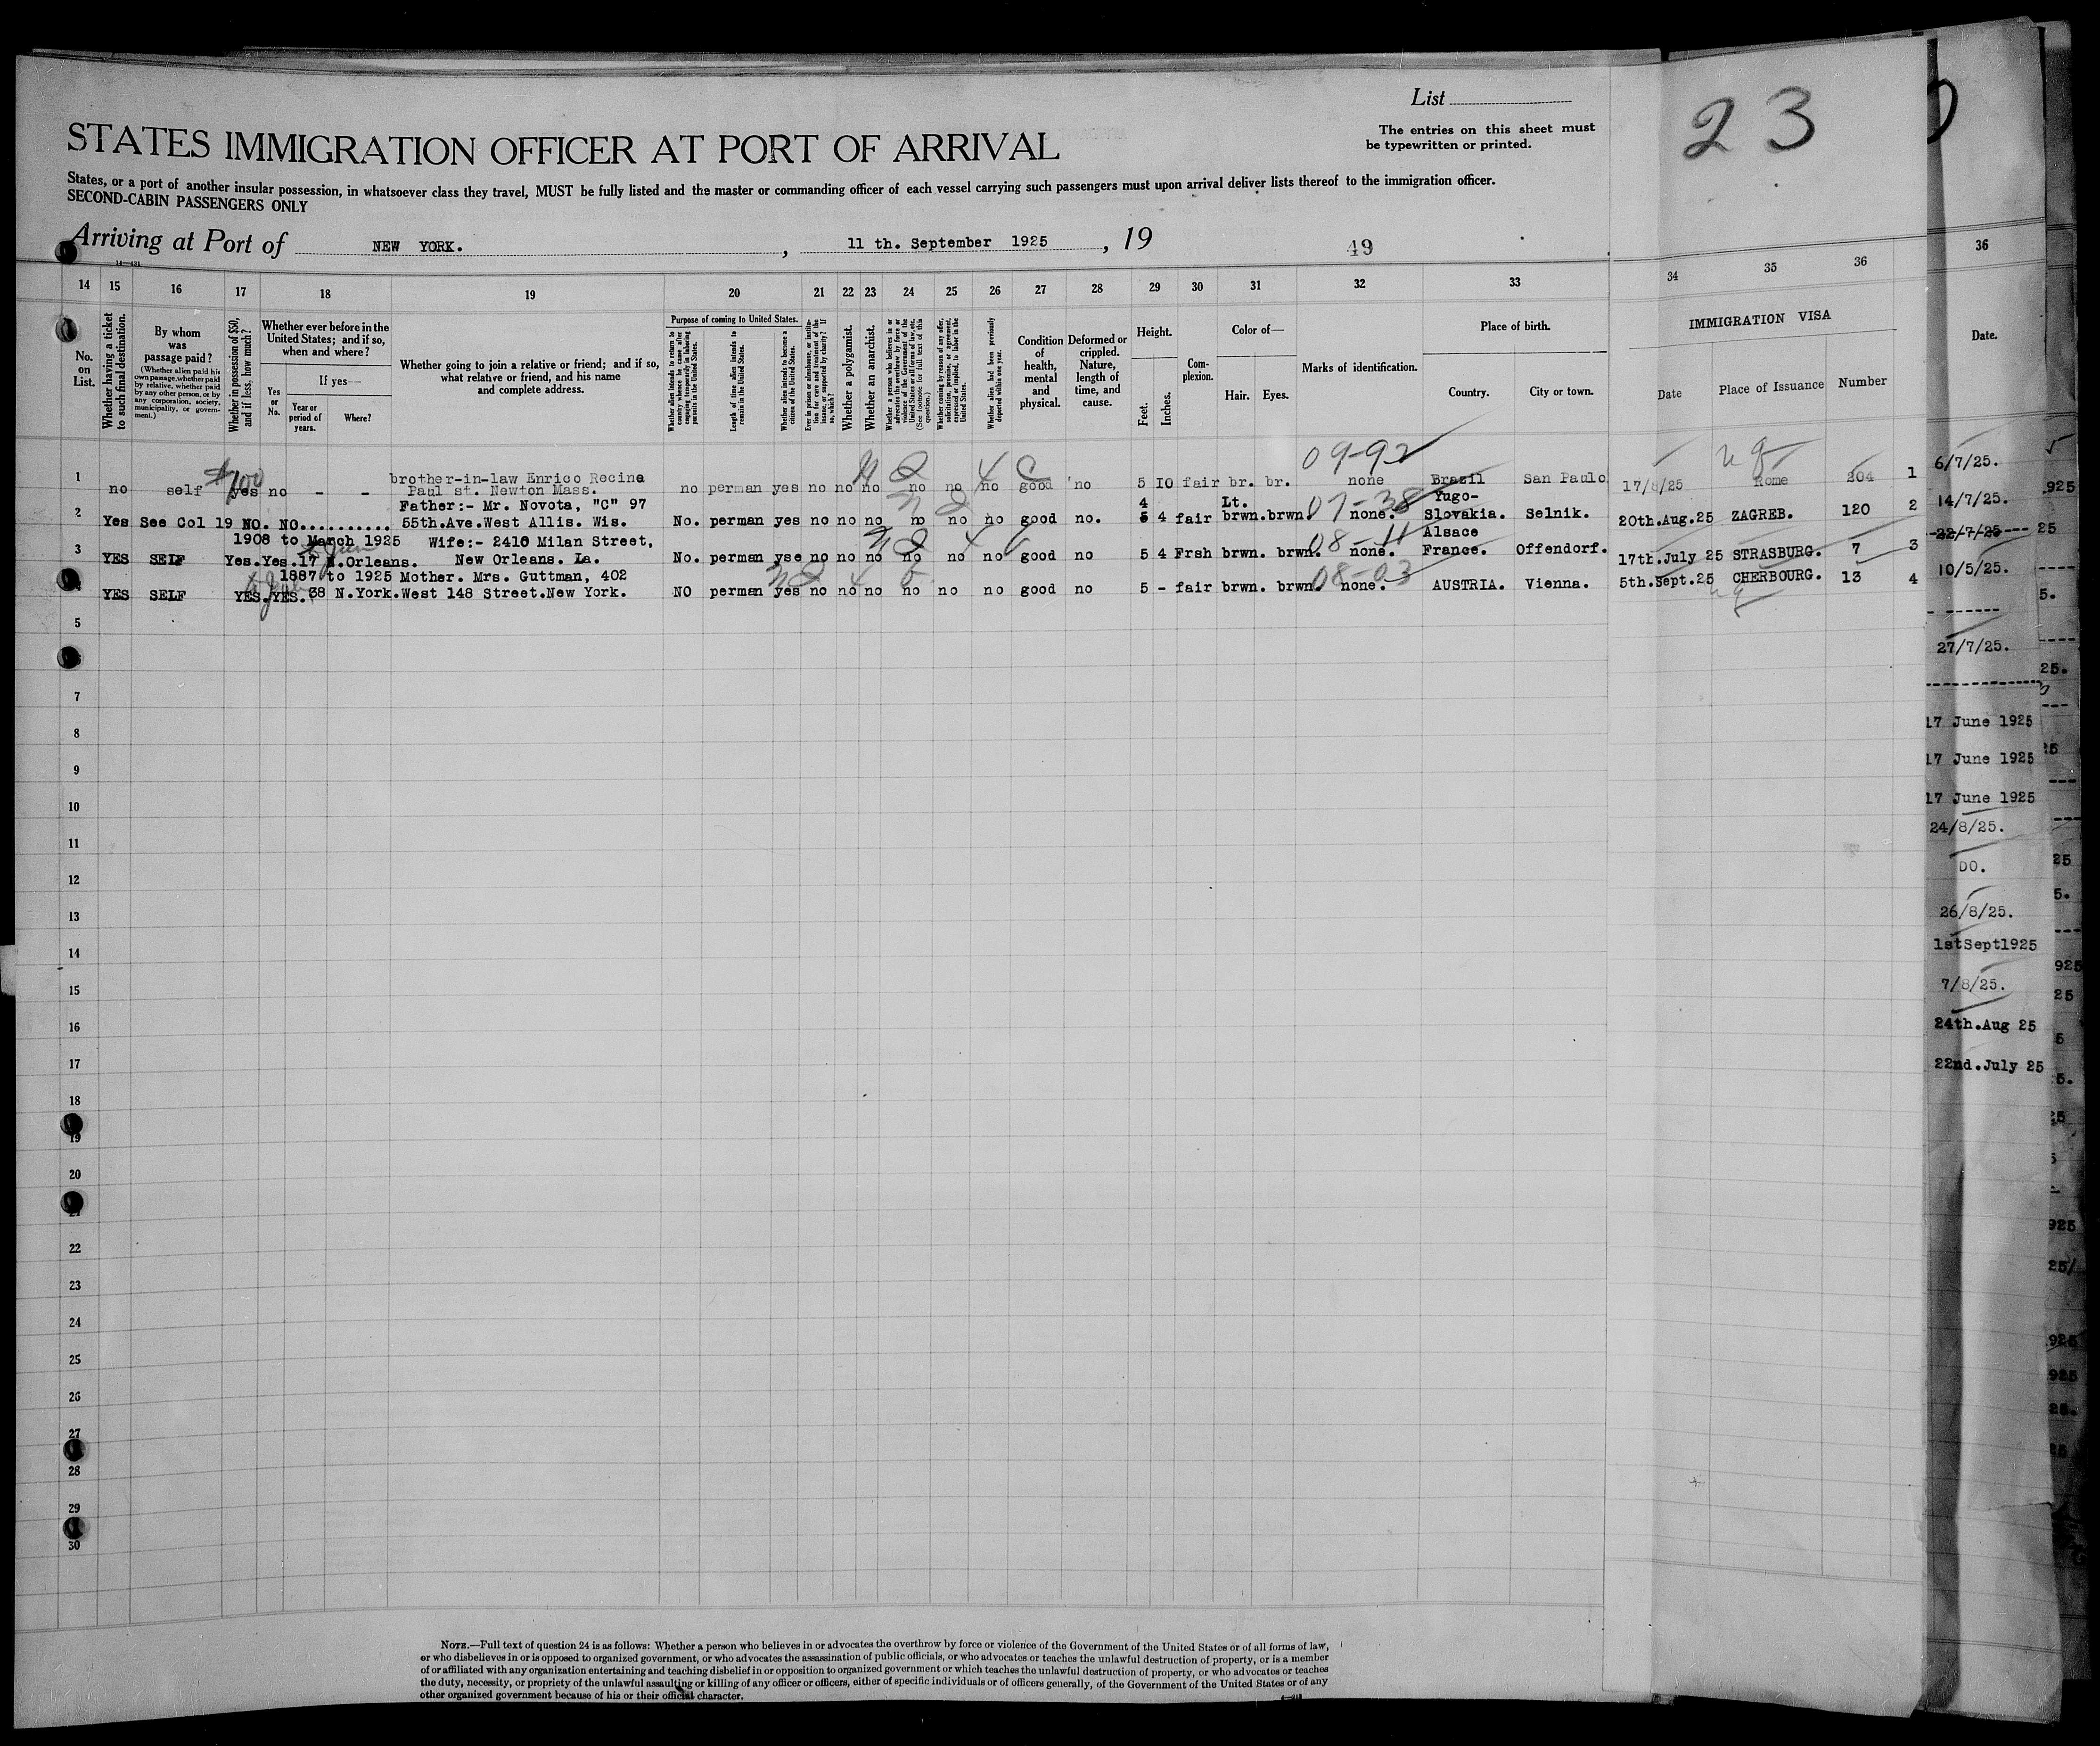 List
The entries on this sheet must
be typewritten or printed.
23
STATES IMMIGRATION OFFICER AT PORT OF ARRIVAL
States, or a port of another insular possession, in whatsoever class they travel, MUST be fully listed and the master or commanding officer of each vessel carrying such passengers must upon arrival deliver lists thereof to the immigration officer.
SECOND-CABIN PASSENGERS ONLY
Arriving at Port of NEW YORK. , 11 th. September 1925 , 19
49
14—431
14 15 16 17 18 19 20 21 22 23 24 25 26 27 28 29 30 31 32 33 34 35 36
No. on List.
Whether having a ticket to such final destination.
By whom was passage paid?
(Whether alien paid his own passage, whether paid by relative, whether paid by any other person, or by any corporation, society, municipality, or government.)
Whether in possession of $50, and if less, how much?
Whether ever before in the United States; and if so, when and where?
Yes or No.
If yes—
Year or period of years.
Where?
Whether going to join a relative or friend; and if so, what relative or friend, and his name and complete address.
Purpose of coming to United States.
Whether alien intends to return to country whence he came after engaging temporarily in laboring pursuits in the United States.
Length of time alien intends to remain in the United States.
Whether alien intends to become a citizen of the United States.
Ever in prison or almshouse, or institution for care and treatment of the insane, or supported by charity? If so, which?
Whether a polygamist.
Whether an anarchist.
Whether a person who believes in or advocates the overthrow by force or violence of the Government of the United States or all forms of law, etc. (See footnote for full text of this question.)
Whether coming by reason of any offer, solicitation, promise, or agreement, expressed or implied, to labor in the United States.
Whether alien had been previously deported within one year.
Condition of health, mental and physical.
Deformed or crippled. Nature, length of time, and cause.
Height.
Feet.
Inches.
Complexion.
Color of—
Hair. Eyes.
Marks of identification.
Place of birth.
Country.
City or town.
IMMIGRATION VISA
Date
Place of Issuance
Number
09-92
brother-in-law Enrico Recine
1 no self $100 yes no - - Paul st. Newton Mass. no perman yes no no no no no no good no 5 10 fair br. br. none Brazil San Paulo 17/8/25 Rome 204 1
Father:- Mr. Novota, "C" 97 4 Lt. 07-38 Yugo-
2 Yes See Col 19 NO. NO.......... 55th.Ave.West Allis. Wis. No. perman yes no no no no no no good no. 5 4 fair brwn.brwn. none. Slovakia. Selnik. 20th.Aug.25 ZAGREB. 120 2
1908 to March 1925 Wife:- 2410 Milan Street, 08-11 Alsace
3 YES SELF Yes.Yes.17 N.Orleans. New Orleans. La. No. perman yse no no no no no no good no 5 4 Frsh brwn. brwn. none. France. Offendorf. 17th.July 25 STRASBURG. 7 3
1887 to 1925 Mother. Mrs. Guttman, 402 08-03
YES SELF YES.YES.38 N.York.West 148 Street.New York. NO perman yes no no no no no no good no 5 - fair brwn. brwn. none. AUSTRIA. Vienna. 5th.Sept.25 CHERBOURG. 13 4
5
7
8
9
10
11
12
13
14
15
16
17
18
19
20
21
22
23
24
25
26
27
28
29
30
36
Date.
6/7/25.
14/7/25.
22/7/25
10/5/25.
27/7/25.
17 June 1925
17 June 1925
17 June 1925
24/8/25.
DO.
26/8/25.
1stSept1925
7/8/25.
24th.Aug 25
22nd.July 25
NOTE.—Full text of question 24 is as follows: Whether a person who believes in or advocates the overthrow by force or violence of the Government of the United States or of all forms of law,
or who disbelieves in or is opposed to organized government, or who advocates the assassination of public officials, or who advocates or teaches the unlawful destruction of property, or is a member
of or affiliated with any organization entertaining and teaching disbelief in or opposition to organized government or which teaches the unlawful destruction of property, or who advocates or teaches
the duty, necessity, or propriety of the unlawful assaulting or killing of any officer or officers, either of specific individuals or of officers generally, of the Government of the United States or of any
other organized government because of his or their official character.